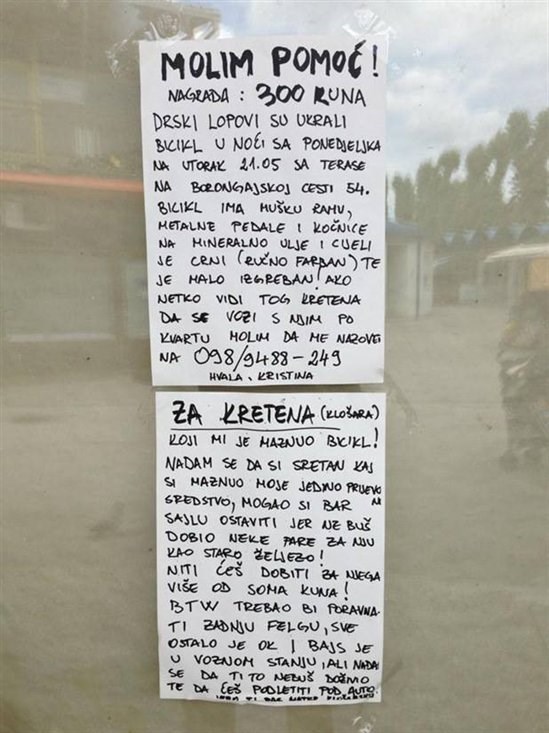 MOLIM POMOĆ!
NAGRADA : 300 KUNA
DRSKI LOPOVI SU UKRALI
BICIKL U NOĆI SA PONEDJELJKA
NA UTORAK 21.05 SA TERASE
NA BORONGAJSKOJ CESTI 54.
BICIKL IMA MUŠKU RAMU,
METALNE PEDALE I KOČNICE
NA MINERALNO ULJE I CIJELI
JE CRNI (RUČNO FARBAN) TE
JE MALO IZGREBAN! AKO
NETKO VIDI TOG KRETENA
DA SE VOZI S NJIM PO
KVARTU MOLIM DA ME NAZOVE
NA 098/9488-249
HVALA, KRISTINA
ZA KRETENA (KLOŠARA)
KOJI MI JE MAZNUO BICIKL!
NADAM SE DA SI SRETAN KAJ
SI MAZNUO MOJE JEDINO PRIJEVO
SREDSTVO, MOGAO SI BAR
SAJLU OSTAVITI JER NE BUŠ
DOBIO NEKE PARE ZA NJU
KAO STARO ŽELJEZO!
NITI ĆEŠ DOBITI ZA NJEGA
VIŠE OD SOMA KUNA!
BTW TREBAO BI PORAVNA-
TI ZADNJU FELGU, SVE
OSTALO JE OK I BAJS JE
U VOZNOM STANJU, ALI NADA
SE DA TI TO NEBUŠ DOŽIVO
TE DA ĆEŠ PODLETITI POD AUTO